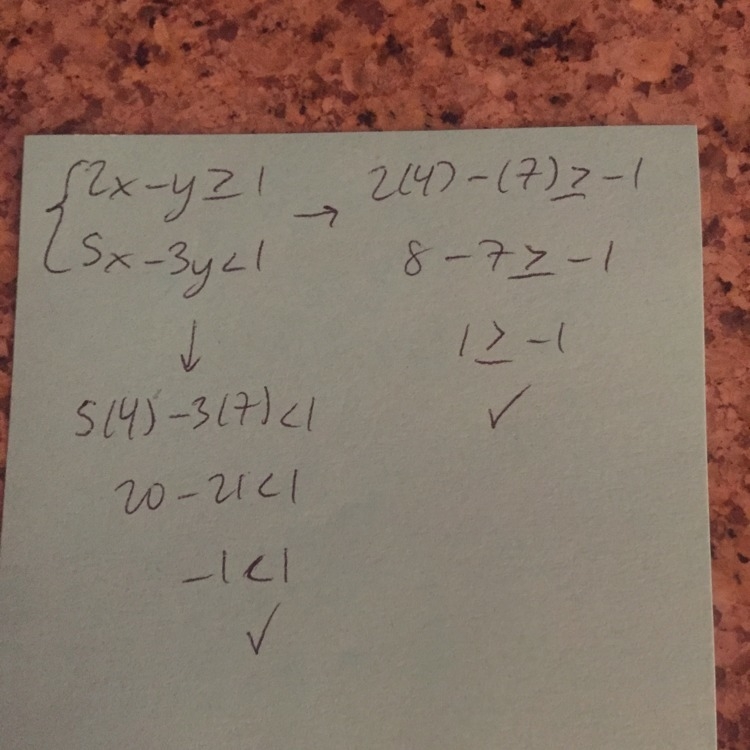 {2x-y≥1
5x-3y<1
→
2(4)-(7)≥-1
8-7≥-1
1≥-1
✓
↓
5(4)-3(7)<1
20-21<1
-1<1
✓